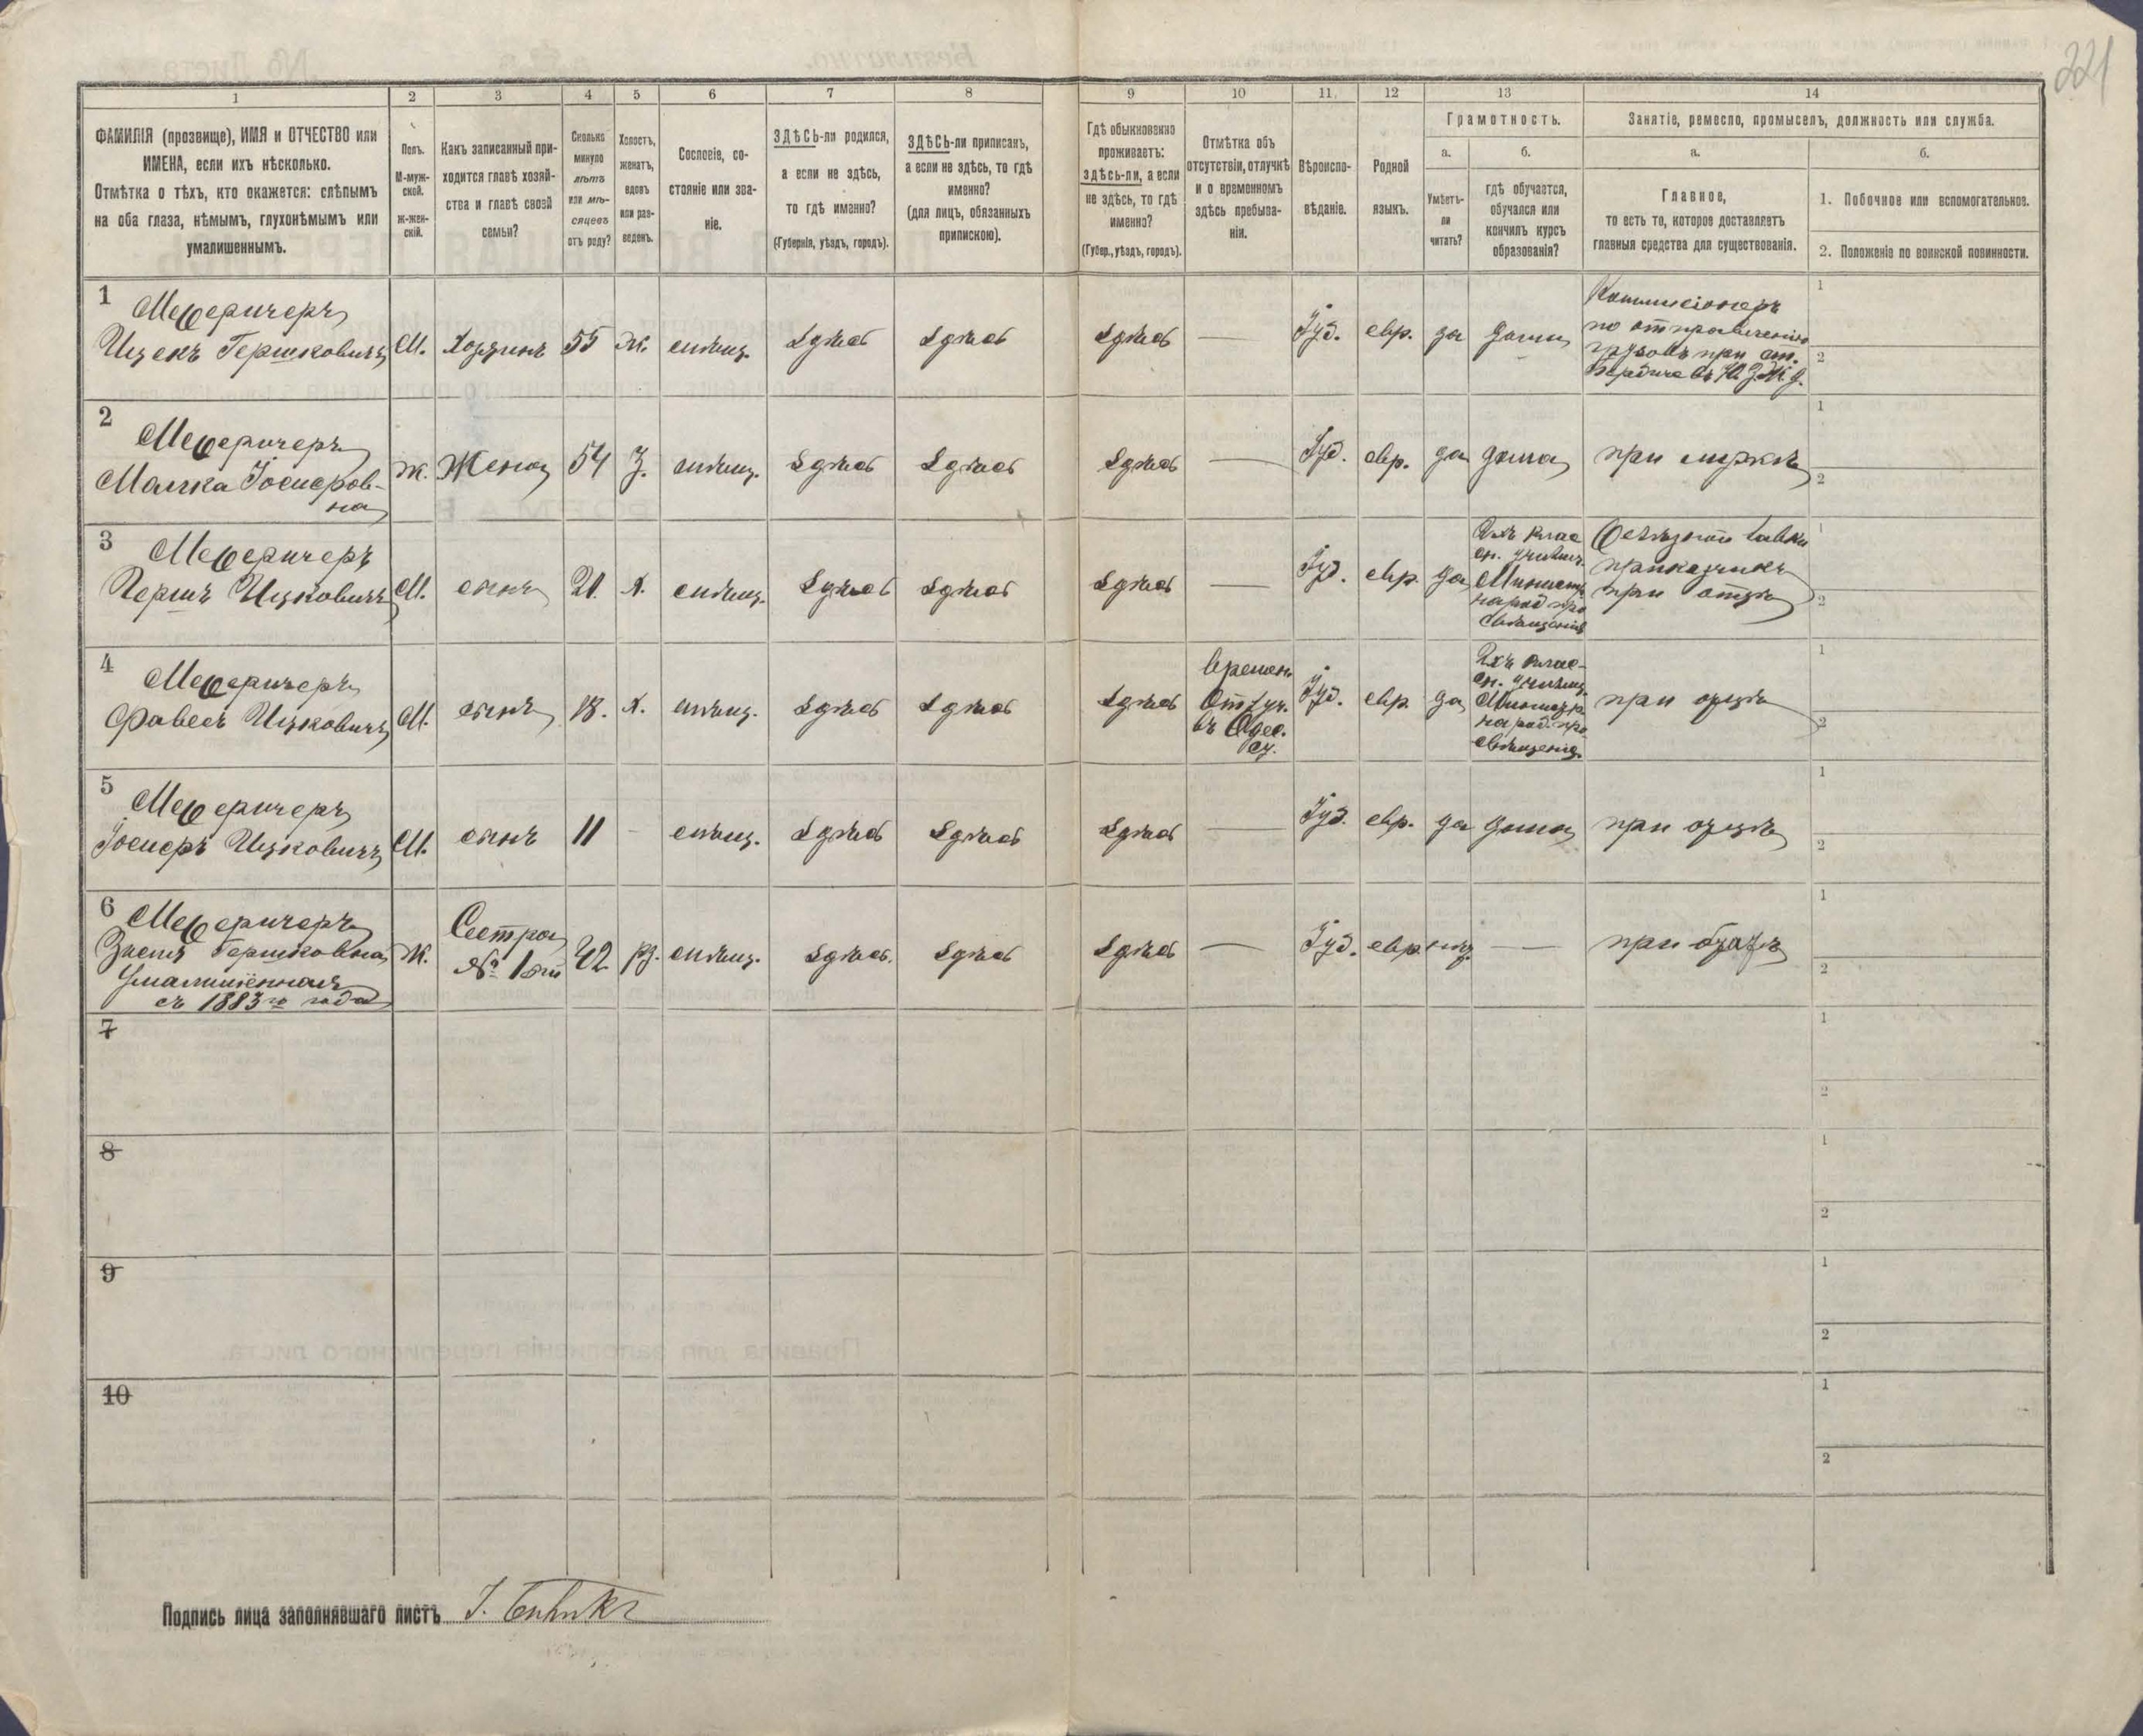 221
1
2
3
4
5
6
7
8
9
10
11
12
13
14
ФАМИЛІЯ (прозвище), ИМЯ и ОТЧЕСТВО или
ИМЕНА, если ихъ нѣсколько.
Отмѣтка о тѣхъ, кто окажется: слѣпымъ
на оба глаза, нѣмымъ, глухонѣмымъ или
умалишеннымъ.
Полъ.
М-муж-
ской.
ж-жен-
скій.
Какъ записанный при-
ходится главѣ хозяй-
ства и главѣ своей
семьи?
Сколько
минуло
лѣтъ
или мѣ-
сяцевъ
отъ роду?
Холостъ,
женатъ,
вдовъ
или раз-
веденъ.
Сословіе, со-
стояніе или зва-
ніе.
ЗДѢСЬ-ли родился,
а если не здѣсь,
то гдѣ именно?
(Губернія, уѣздъ, городъ).
ЗДѢСЬ-ли приписанъ,
а если не здѣсь, то гдѣ
именно?
(для лицъ, обязанныхъ
припискою).
Гдѣ обыкновенно
проживаетъ:
здѣсь-ли, а если
не здѣсь, то гдѣ
именно?
(Губер., уѣздъ, городъ).
Отмѣтка объ
отсутствіи, отлучкѣ
и о временномъ
здѣсь пребыва-
ніи.
Вѣроиспо-
вѣданіе.
Родной
языкъ.
Грамотность.
а.
б.
Умѣетъ-
ли
читать?
гдѣ обучается,
обучался или
кончилъ курсъ
образованія?
Занятіе, ремесло, промыселъ, должность или служба.
а.
б.
Главное,
то есть то, которое доставляетъ
главныя средства для существованія.
1. Побочное или вспомогательное.
2. Положеніе по воинской повинности.
1
Межеричеръ
Ицекъ Гершковичъ
М.
Хозяинъ
55
ж.
мѣщ.
Здѣсь
Здѣсь
Здѣсь
—
Іуд.
евр.
да
дома
Коммисіонеръ
по отправленію
грузовъ при ст.
Бердичевъ Ю.З.Ж.д.
1
2
2
Межеричеръ
Малка Іосифов-
на
ж.
Жена
54
З.
мѣщ.
Здѣсь
Здѣсь
Здѣсь
—
Іуд.
евр.
да
дома
при мужѣ
1
2
3
Межеричеръ
Гершъ Ицковичъ
М.
сынъ
21.
х.
мѣщ.
Здѣсь
Здѣсь
Здѣсь
—
Іуд.
евр.
да
2хъ клас
сн. училищ.
Министр.
народ. про
свѣщенія
приказчикъ
при отцѣ
1
2
4
Межеричеръ
Ицковичъ
М.
сынъ
18.
х.
мѣщ.
Здѣсь
Здѣсь
Здѣсь
Времен.
Отлуч.
въ Одес.
су.
Іуд.
евр.
да
2хъ клас-
сн. училищ.
Министр.
народ. про
свѣщенія.
при отцѣ
1
2
5
Межеричеръ
Іосифъ Ицковичъ
М.
сынъ
11
—
мѣщ.
Здѣсь
Здѣсь
Здѣсь
—
Іуд.
евр.
да
дома
при отцѣ
1
2
6
Межеричеръ
Гершковна
Умалишённая
съ 1883го года
ж.
Сестра
№ 1ый
42
рз.
мѣщ.
Здѣсь
Здѣсь
Здѣсь
—
Іуд.
евр.
—
при братѣ
1
2
7
1
2
8
1
2
9
1
2
10
1
2
Подпись лица заполнявшаго листъ